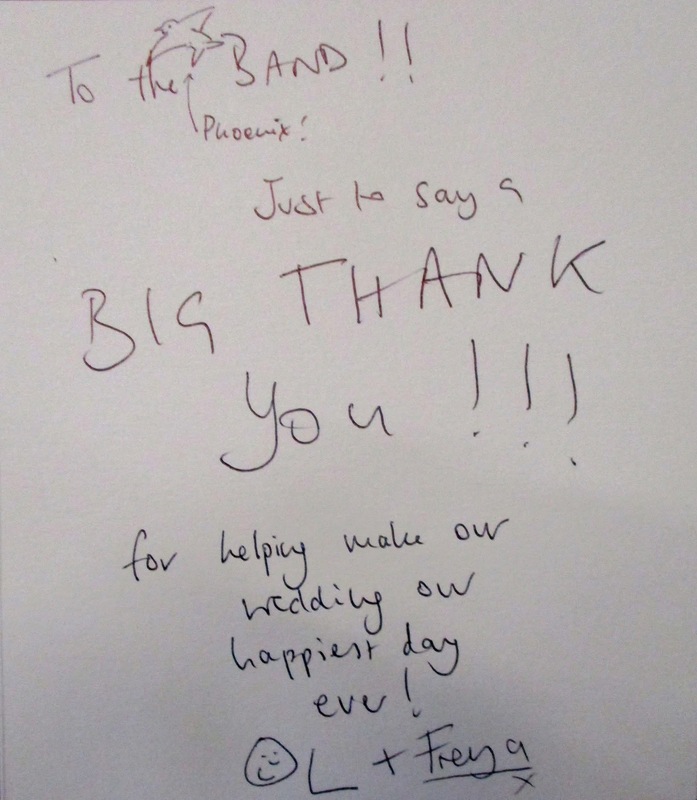 To the BAND!!
Phoenix!
Just to say a
BIG THANK
you!!!
for helping make our
wedding our
happiest day
ever!
L + Freya
x